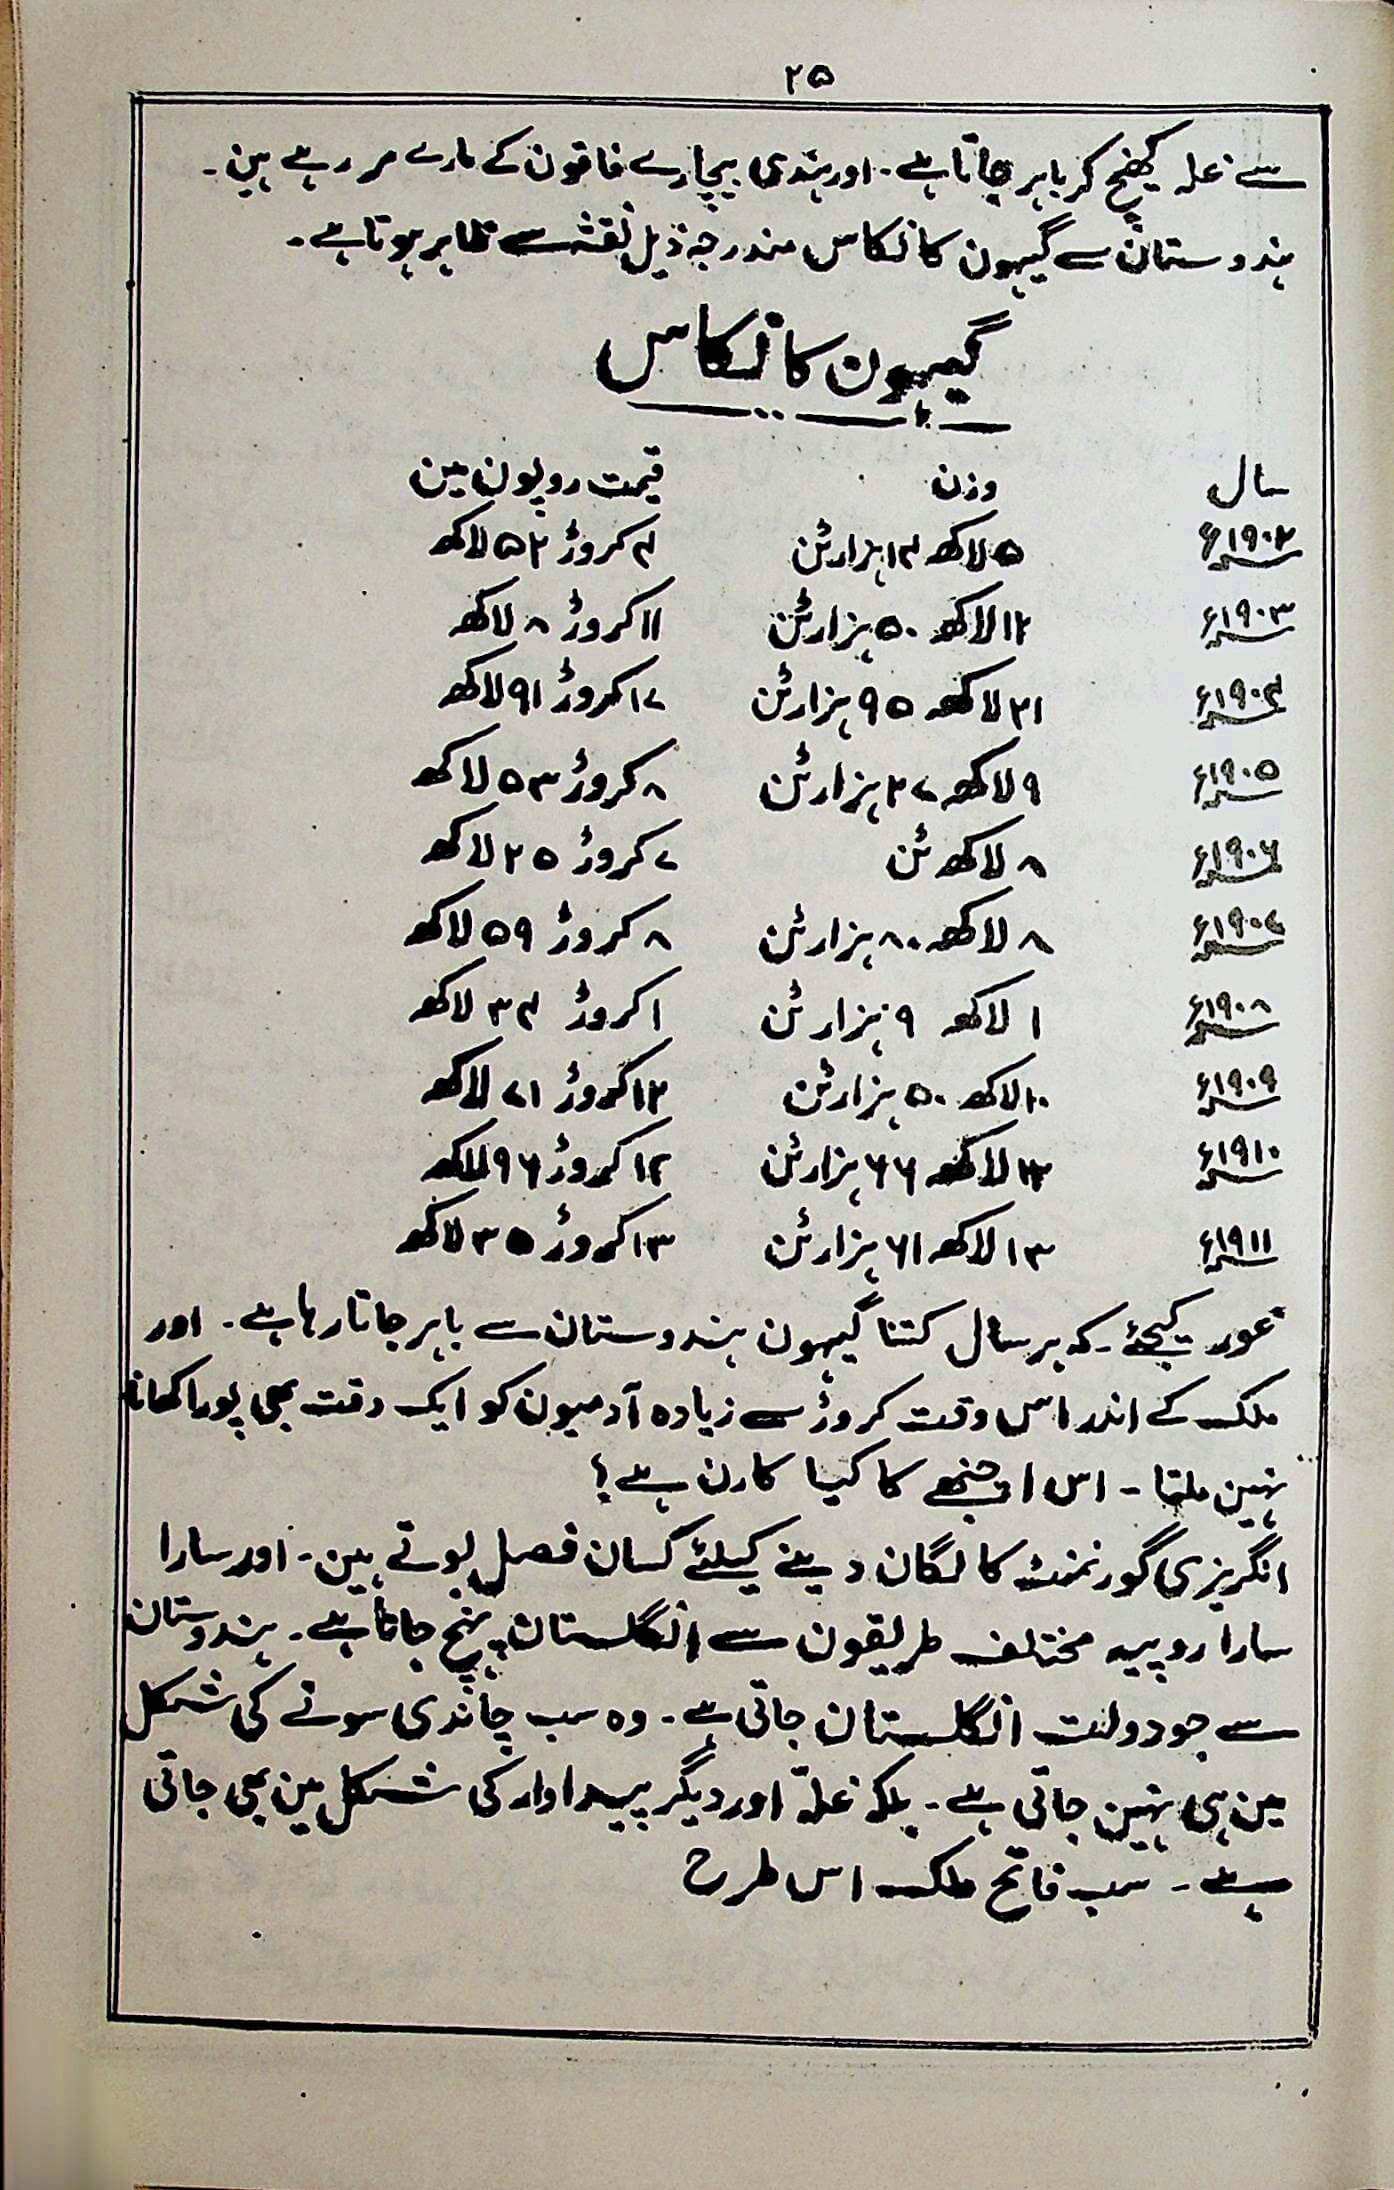 ۲۵
سے غلہ کھنچ کر باہر جاتا ہے۔ اور ہندی بیچارے فاقون کے مارے مر رہے ہین۔
ہندوستان سے گیہون کا نکاس مندرجہ ذیل نقشہ سے ظاہر ہوتا ہے۔
گیہون کا نکاس
سال وزن قیمت روپون مین
۱۹۰۲ء ۵ لاکھ ۱۴ ہزار ٹن ۴ کروڑ ۵۲ لاکھ
۱۹۰۳ء ۱۲ لاکھ ۵۰ ہزار ٹن ۱۱ کروڑ ۸ لاکھ
۱۹۰۴ء ۲۱ لاکھ ۹۵ ہزار ٹن ۱۷ کروڑ ۹۱ لاکھ
۱۹۰۵ء ۹ لاکھ ۲۷ ہزار ٹن ۸ کروڑ ۵۳ لاکھ
۱۹۰۶ء ۸ لاکھ ٹن ۷ کروڑ ۲۵ لاکھ
۱۹۰۷ء ۸ لاکھ ۸۰ ہزار ٹن ۸ کروڑ ۵۹ لاکھ
۱۹۰۸ء ۱ لاکھ ۹ ہزار ٹن ۱ کروڑ ۳۴ لاکھ
۱۹۰۹ء ۱۰ لاکھ ۵۰ ہزار ٹن ۱۲ کروڑ ۷۱ لاکھ
۱۹۱۰ء ۱۲ لاکھ ۶۶ ہزار ٹن ۱۲ کروڑ ۹۶ لاکھ
۱۹۱۱ء ۱۳ لاکھ ۶۱ ہزار ٹن ۱۳ کروڑ ۳۵ لاکھ
غور کیجئے۔ کہ ہر سال کتنا گیہون ہندوستان سے باہر جاتا رہا ہے۔ اور
ملک کے اندر اس وقت کروڑ سے زیادہ آدمیون کو ایک وقت بھی پورا کھانا
نہین ملتا۔ اس اچنبھے کا کیا کارن ہے؟
انگریزی گورنمنٹ کا لگان دینے کیلئے کسان فصل بوتے ہین۔ اور سارا
سارا روپیہ مختلف طریقون سے انگلستان پہنچ جاتا ہے۔ ہندوستان
سے جو دولت انگلستان جاتی ہے۔ وہ سب چاندی سونے کی شکل
مین ہی نہین جاتی ہے۔ بلکہ غلّہ اور دیگر پیداوار کی شکل مین بھی جاتی
ہے۔ سب فاتح ملک اس طرح